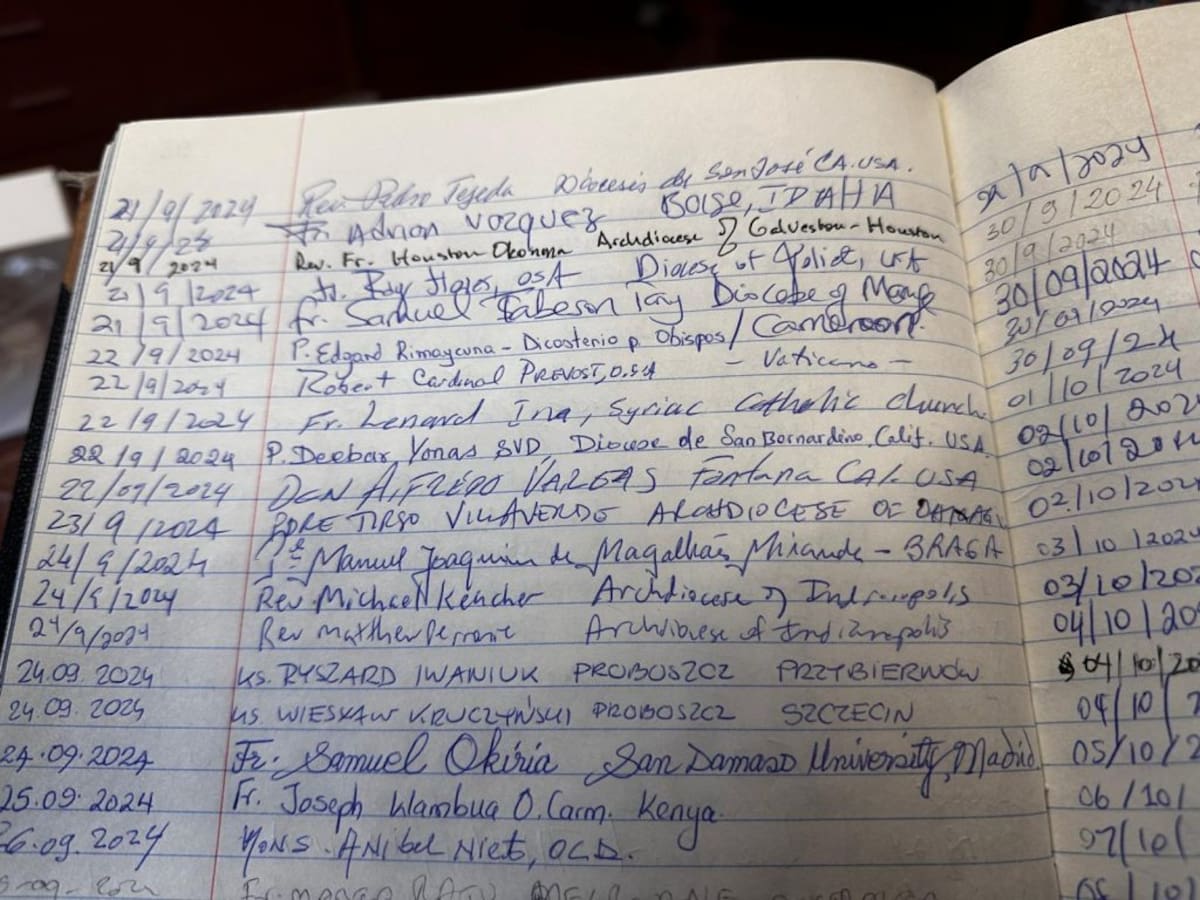 21/9/2024 Rev. Pedro Tejeda Diócesis de San José CA. USA.
21/9/24 Fr. Adrian Vazquez Boise, IDAHA
21/9/2024 Rev. Fr. Houston Okonma Archdiocese of Galveston-Houston
21/9/2024 Fr. Ray Flores, OSA Diocese of Joliet, USA
21/9/2024 Fr. Samuel Tabeson Diocese of Mamfe
/ Cameroon.
22/9/2024 P. Edgard Rimaycuna - Dicasterio p. Obispos
22/9/2024 Robert Cardinal PREVOST, O.S.A - Vaticano -
22/9/2024 Fr. Lenard Ina, Syriac Catholic Church
22/9/2024 P. Deebar Yonas SVD, Diocese de San Bernardino, Calif. USA.
22/09/2024 DCN ALFREDO VARGAS Fontana CAL. USA
23/9/2024 PDRE TIRSO VILLAVERDE ARCHDIOCESE OF
24/9/2024 Manuel Joaquim de Magalhães Miranda - BRAGA
24/9/2024 Rev. Michael Keucher Archdiocese of Indianapolis
24/9/2024 Rev Matthew Perronie Archdiocese of Indianapolis
24.09.2024 KS. RYSZARD IWANIUK PROBOSZCZ PRZYBIERNÓW
24.09.2024 KS. WIESŁAW KRUCZYŃSKI PROBOSZCZ SZCZECIN
24.09.2024 Fr. Samuel Okiria San Damaso University, Madrid.
25.09.2024 Fr. Joseph Wambua O.Carm. Kenya.
26.09.2024 MONS. ANIBAL Nieto, OCD.
30/9/2024
30/9/2024
30/09/2024
30/09/2024
30/09/24
01/10/2024
02/10/202
02/10/20
02.10/202
03/10/202
03/10/202
04/10/20
04/10/20
04/10/2
05/10/2
06/10/
07/10/